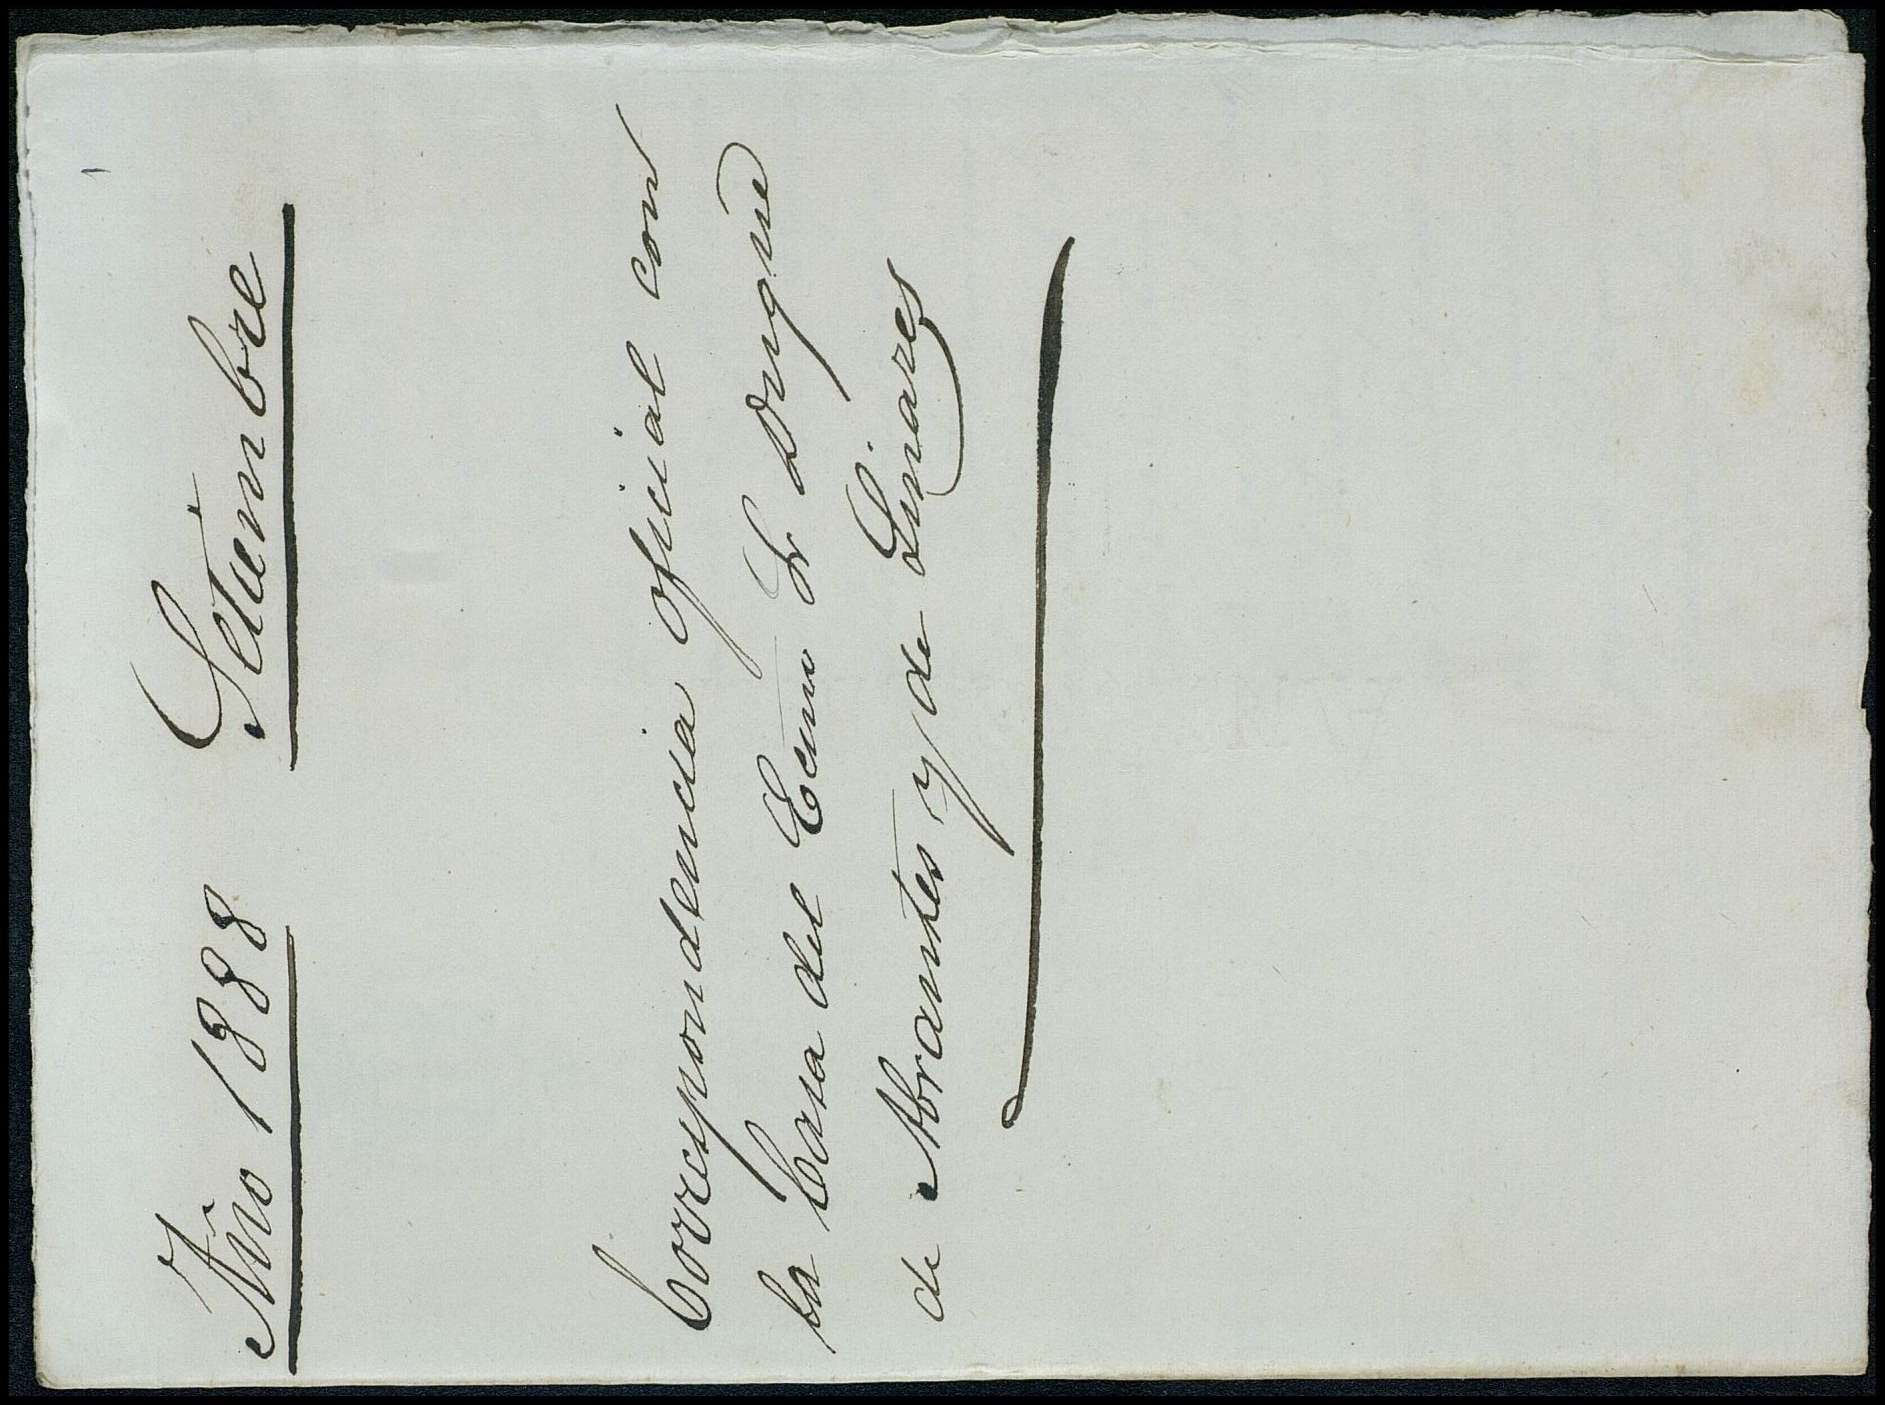 Año 1888 Setiembre
Correspondencia oficial con
la Casa del Ecmo Sr Duque
de Abrantes y de Linares